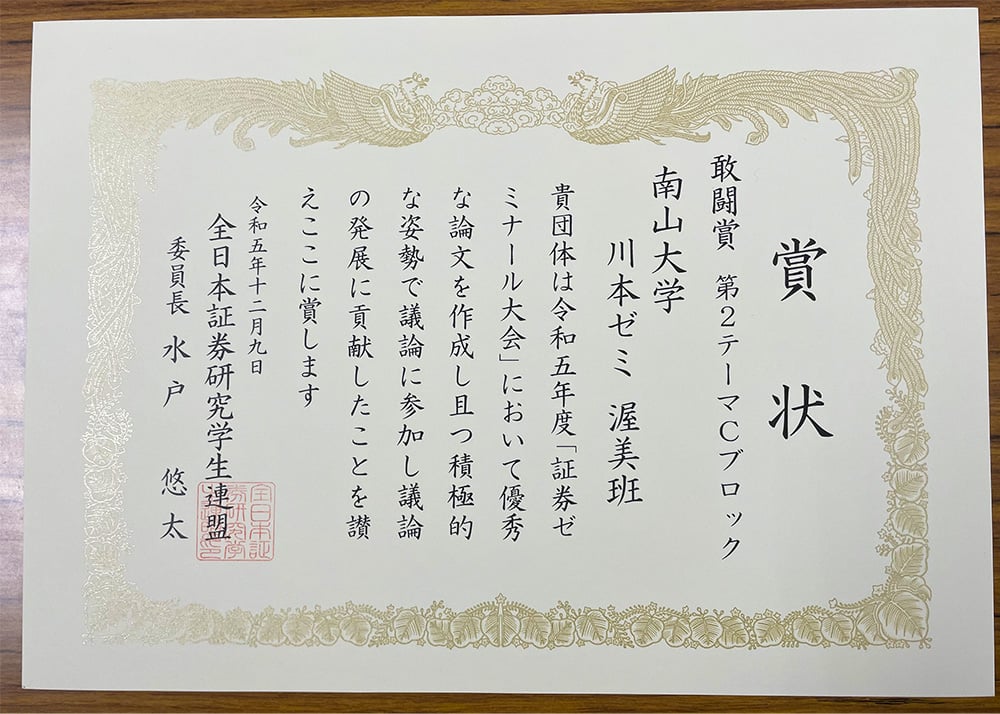 賞状
敢闘賞 第2テーマCブロック
南山大学
川本ゼミ 渥美班
貴団体は令和五年度「証券ゼ
ミナール大会」において優秀
な論文を作成し且つ積極的
な姿勢で議論に参加し議論
の発展に貢献したことを讃
えここに賞します
令和五年十二月九日
全日本証券研究学生連盟
委員長 水戸 悠太
全日本証
券研究学